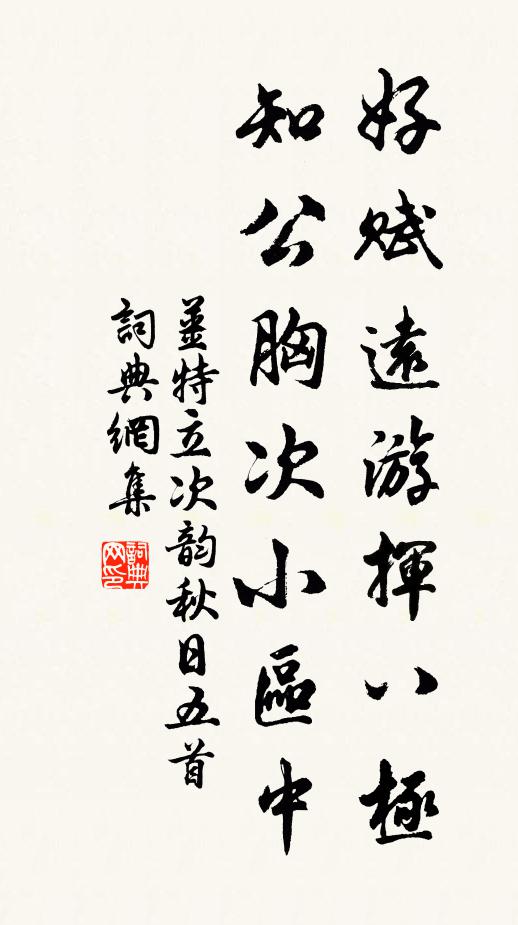 好賦遠游揮八極
知公胸次小區中
姜特立次韵秋日五首
詞典網集
詞典網印